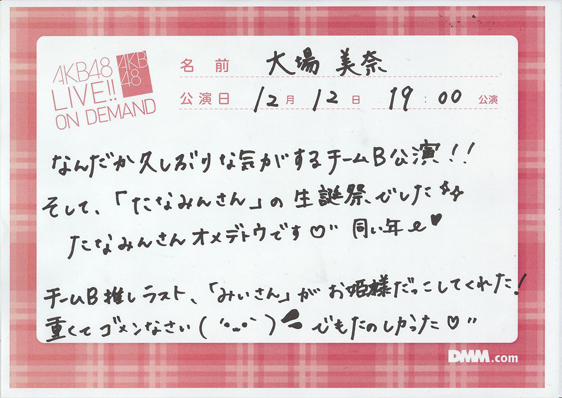 AKB48
LIVE!!
ON DEMAND
AKB
48
名前 大場美奈
公演日 12月12日 19:00公演
なんだか久しぶりな気がするチームB公演!!
そして、「たなみんさん」の生誕祭でした☆☆
たなみんさんオメデトウです♡" 同い年♥
チームB推しラスト、「みぃさん」がお姫様だっこしてくれた!
重くてゴメンなさい(´・_・`) でもたのしかった♡"
DMM.com